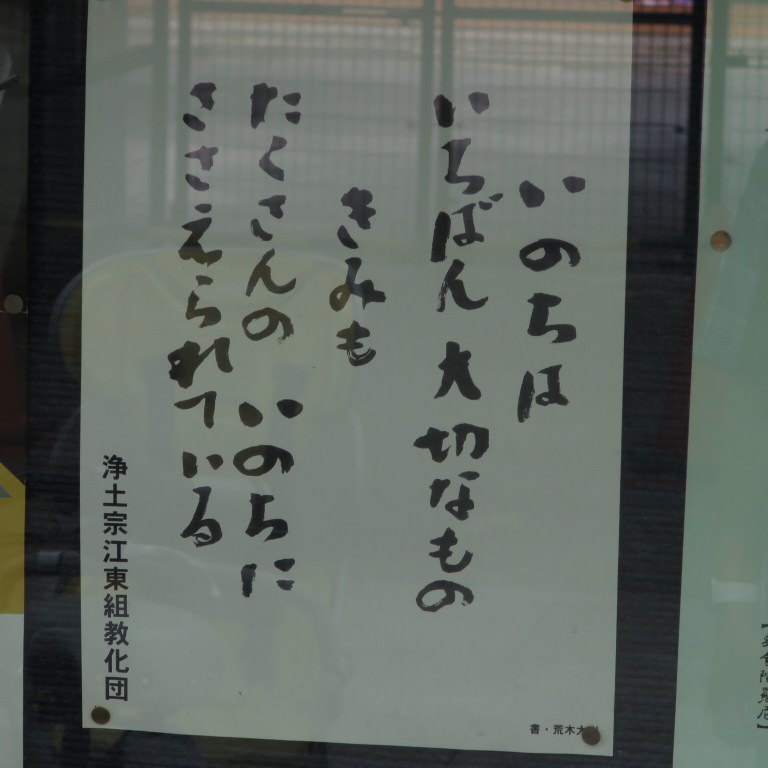 いのちは
いちばん大切なもの
きみも
たくさんの いのちに
ささえられている
浄土宗江東組教化団
書・荒木大